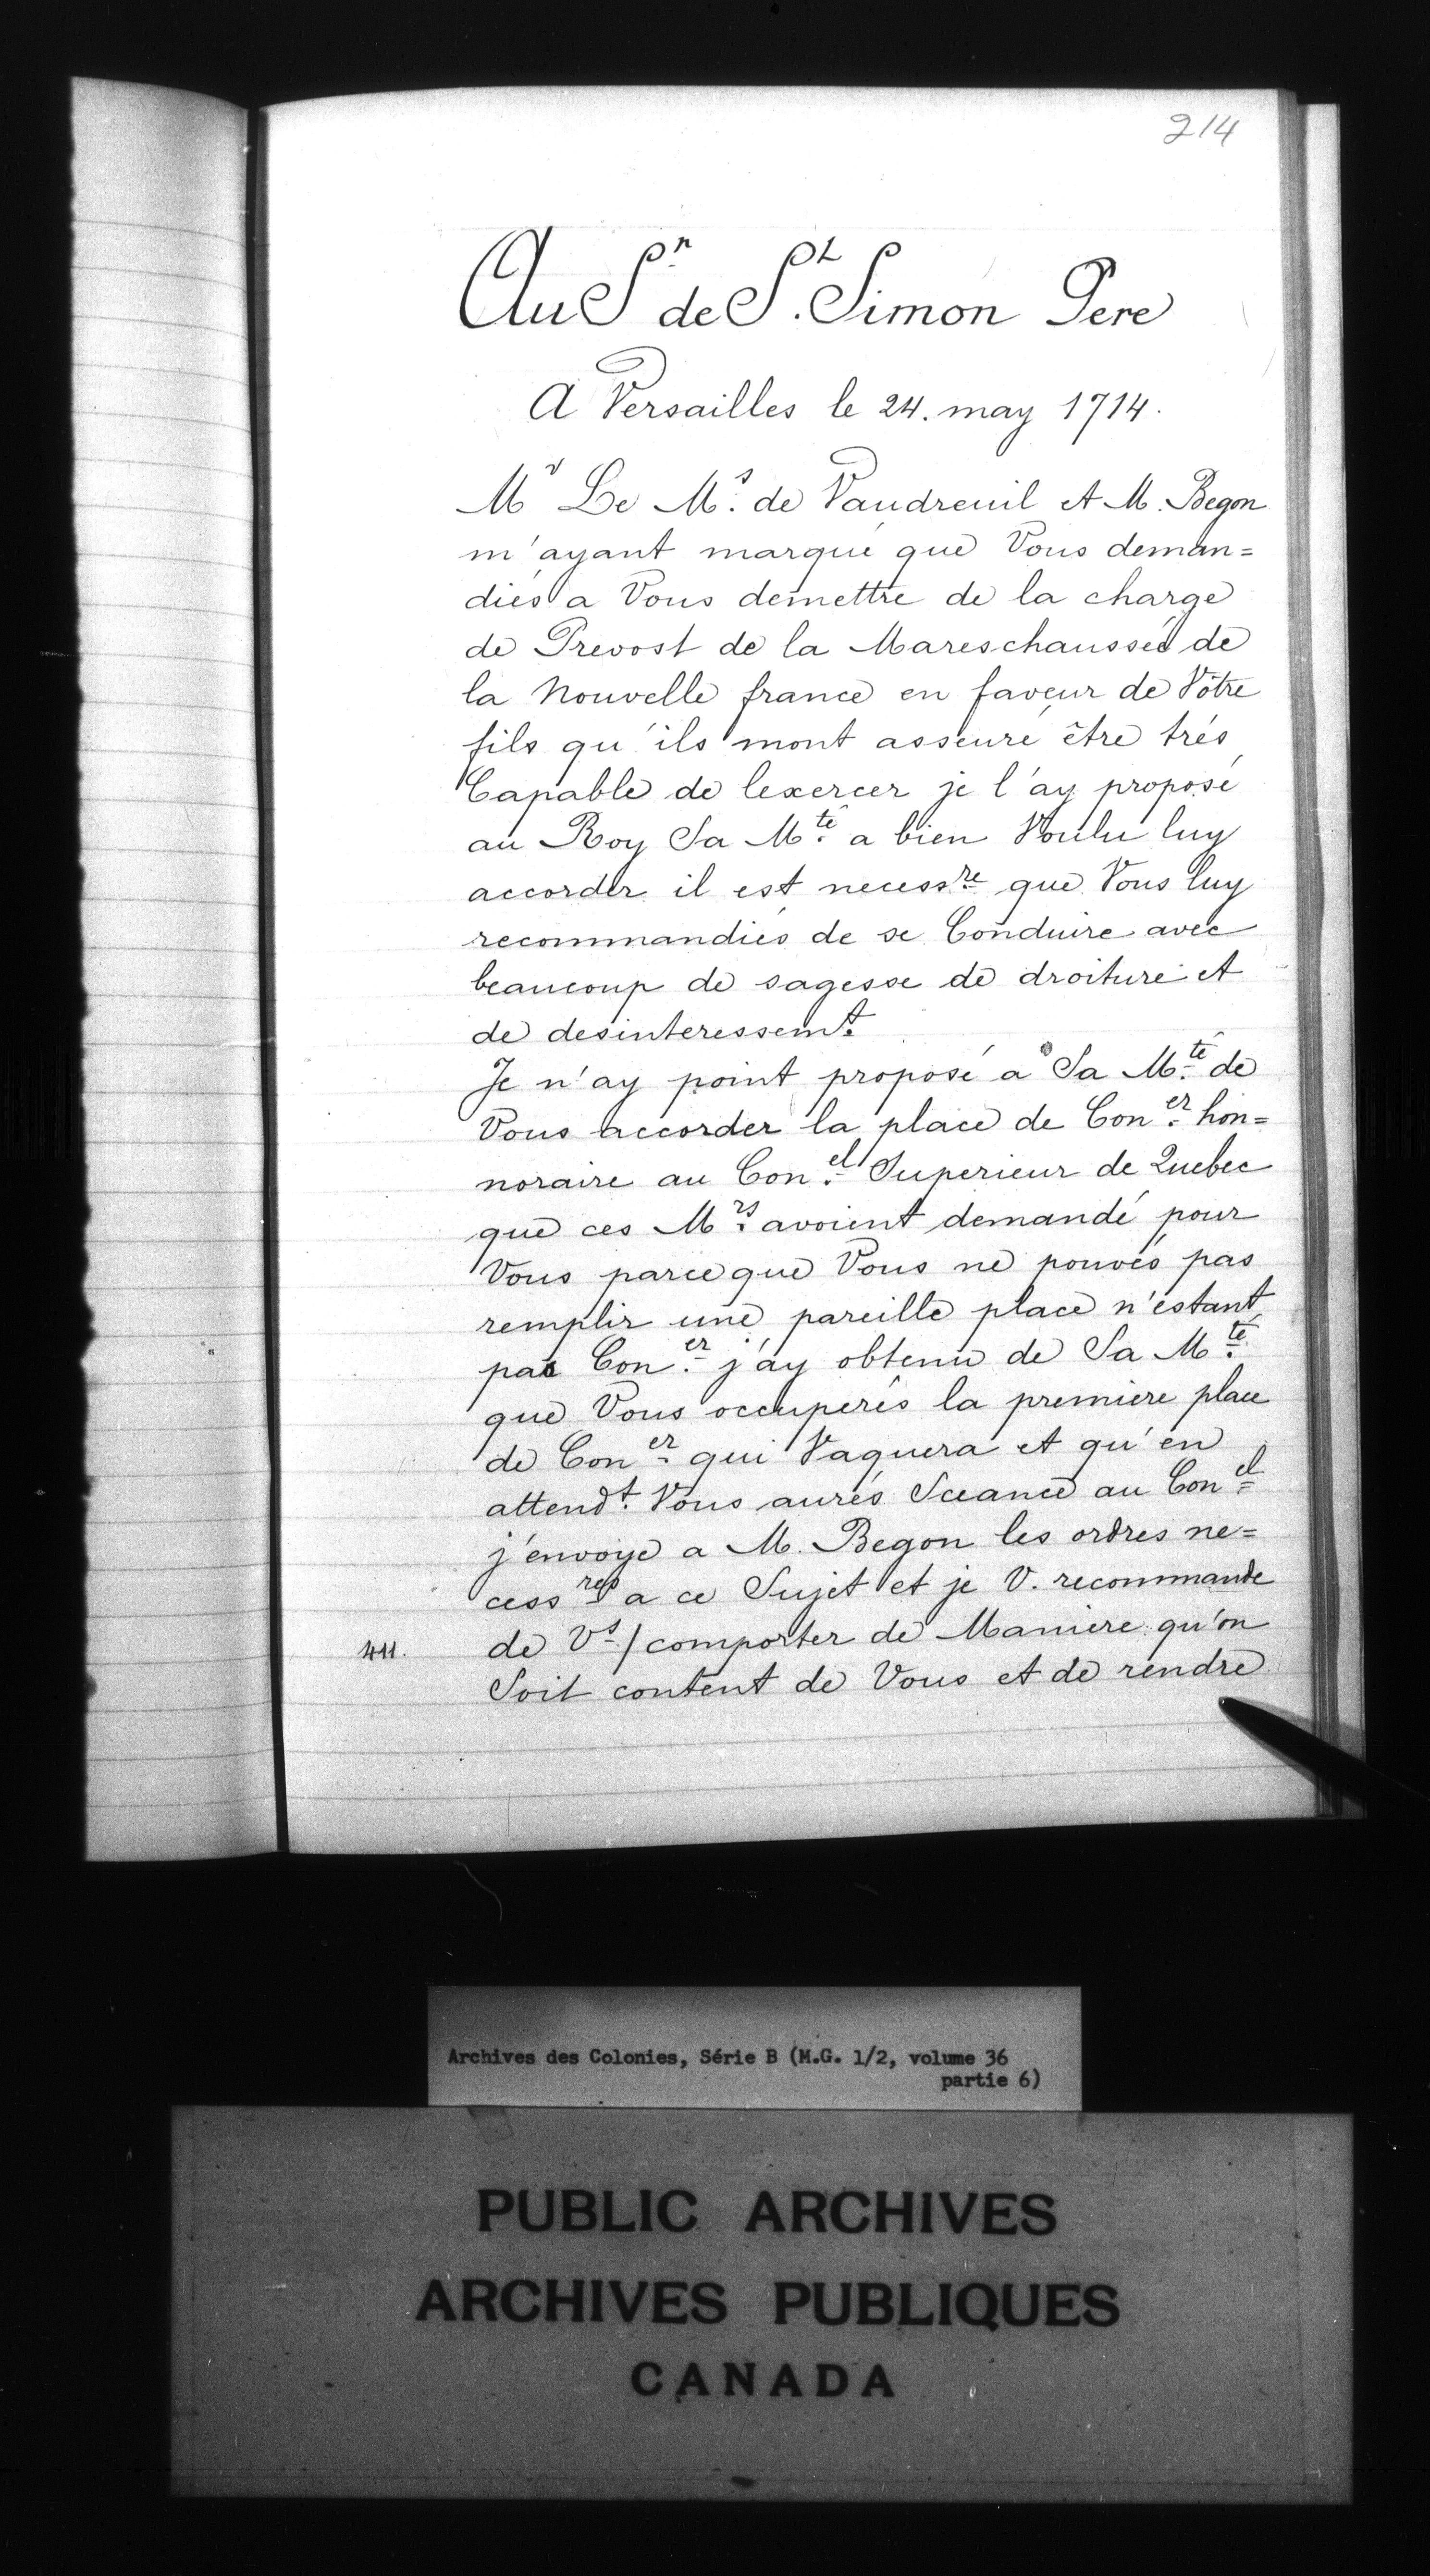 214
Au Sr de St. Simon Pere
A Versailles le 24. may 1714.
Mr Le Ms. de Vaudreuil et M. Begon
m'ayant marqué que Vous deman=
diés a Vous demettre de la charge
de Prevost de la Mareschaussée de
la Nouvelle france en faveur de Vôtre
fils qu'ils mont asseuré être trés
Capable de lexercer je l'ay proposé
au Roy Sa Mté. a bien Voulu luy
accorder il est necessre que Vous luy
recommandiés de se Conduire avec
beaucoup de sagesse de droiture et
de desinteressemt.
Je n'ay point proposé a Sa Mté. de
Vous accorder la place de Coner. hon=
noraire au Conel. Superieur de Quebec
que ces Mrs. avoient demandé pour
Vous parceque Vous ne pouvés pas
remplir une pareille place n'estant
pas Coner. j'ay obtenu de Sa Mté.
que Vous occuperés la premiere place
de Coner qui Vaquera et qu'en
attendt. Vous aurés Sceance au Conel
j'envoye a M. Begon les ordres ne=
cessres a ce Sujet et je V. recommande
411. de Vs / comporter de Maniere qu'on
Soit content de Vous et de rendre
Archives des Colonies, Série B (M.G. 1/2, volume 36
partie 6)
PUBLIC ARCHIVES
ARCHIVES PUBLIQUES
CANADA